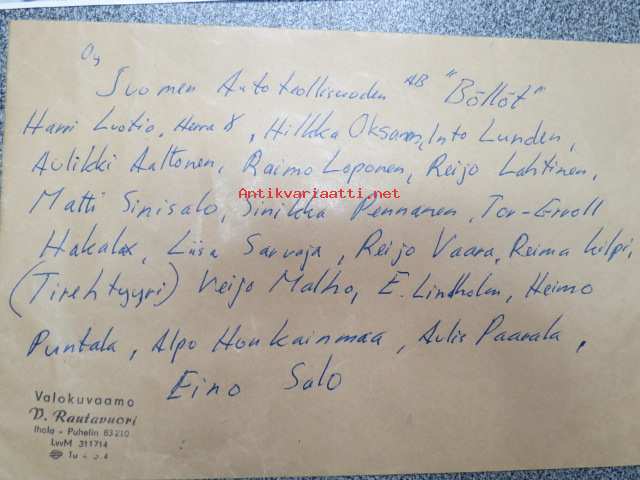 Oy
Suomen Autoteollisuuden AB "Böllöt"
Harri Luotio, Herra X, Hilkka Oksanen, Into Lunden,
Aulikki Aaltonen, Raimo Loponen, Reijo Lahtinen,
Antikvariaatti.net
Matti Sinisalo, Sinikka Pennanen, Tor-Erroll
Hakalax, Liisa Sarvaja, Reijo Vaara, Reima Kilpi,
(Tirehtyyri) Veijo Malho, E. Lindholm, Heimo
Puntala, Alpo Honkainmaa, Aulis Paarala,
Eino Salo
Valokuvaamo
V. Rautavuori
Ihola - Puhelin 83210
LvvM 311714